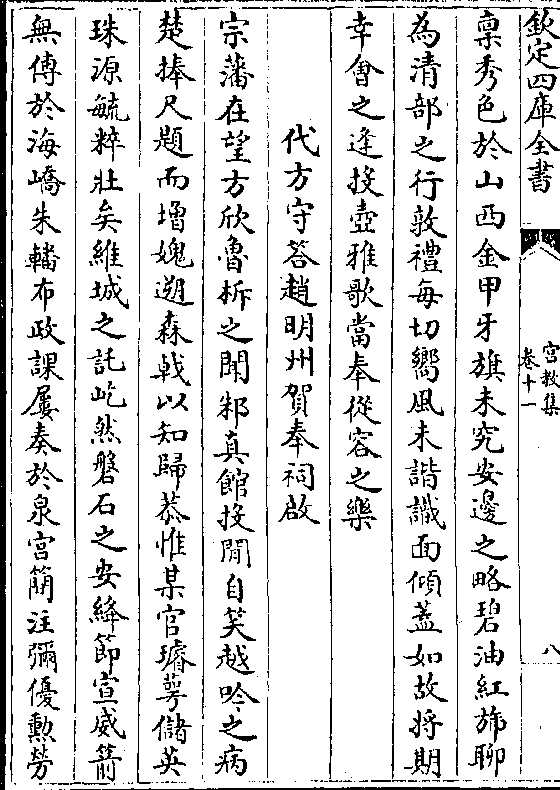 欽定四庫全書
宫教集
卷十一
八
禀秀色於山西金甲牙旗未究安邊之略碧油紅斾聊
為清部之行敦禮每切嚮風未諧識面傾蓋如故将期
幸會之逢投壺雅歌當奉從容之樂
代方守答趙明州賀奉祠啟
宗藩在望方欣魯柝之聞邾真館投閒自笑越吟之病
楚捧尺題而增媿遡森㦸以知歸恭惟某官璿蕚儲英
珠源毓粹壯矣維城之託屹然磐石之安絳節宣威箭
無傳於海嶠朱轓布政課屢奏於泉宫簡注彌優勲勞